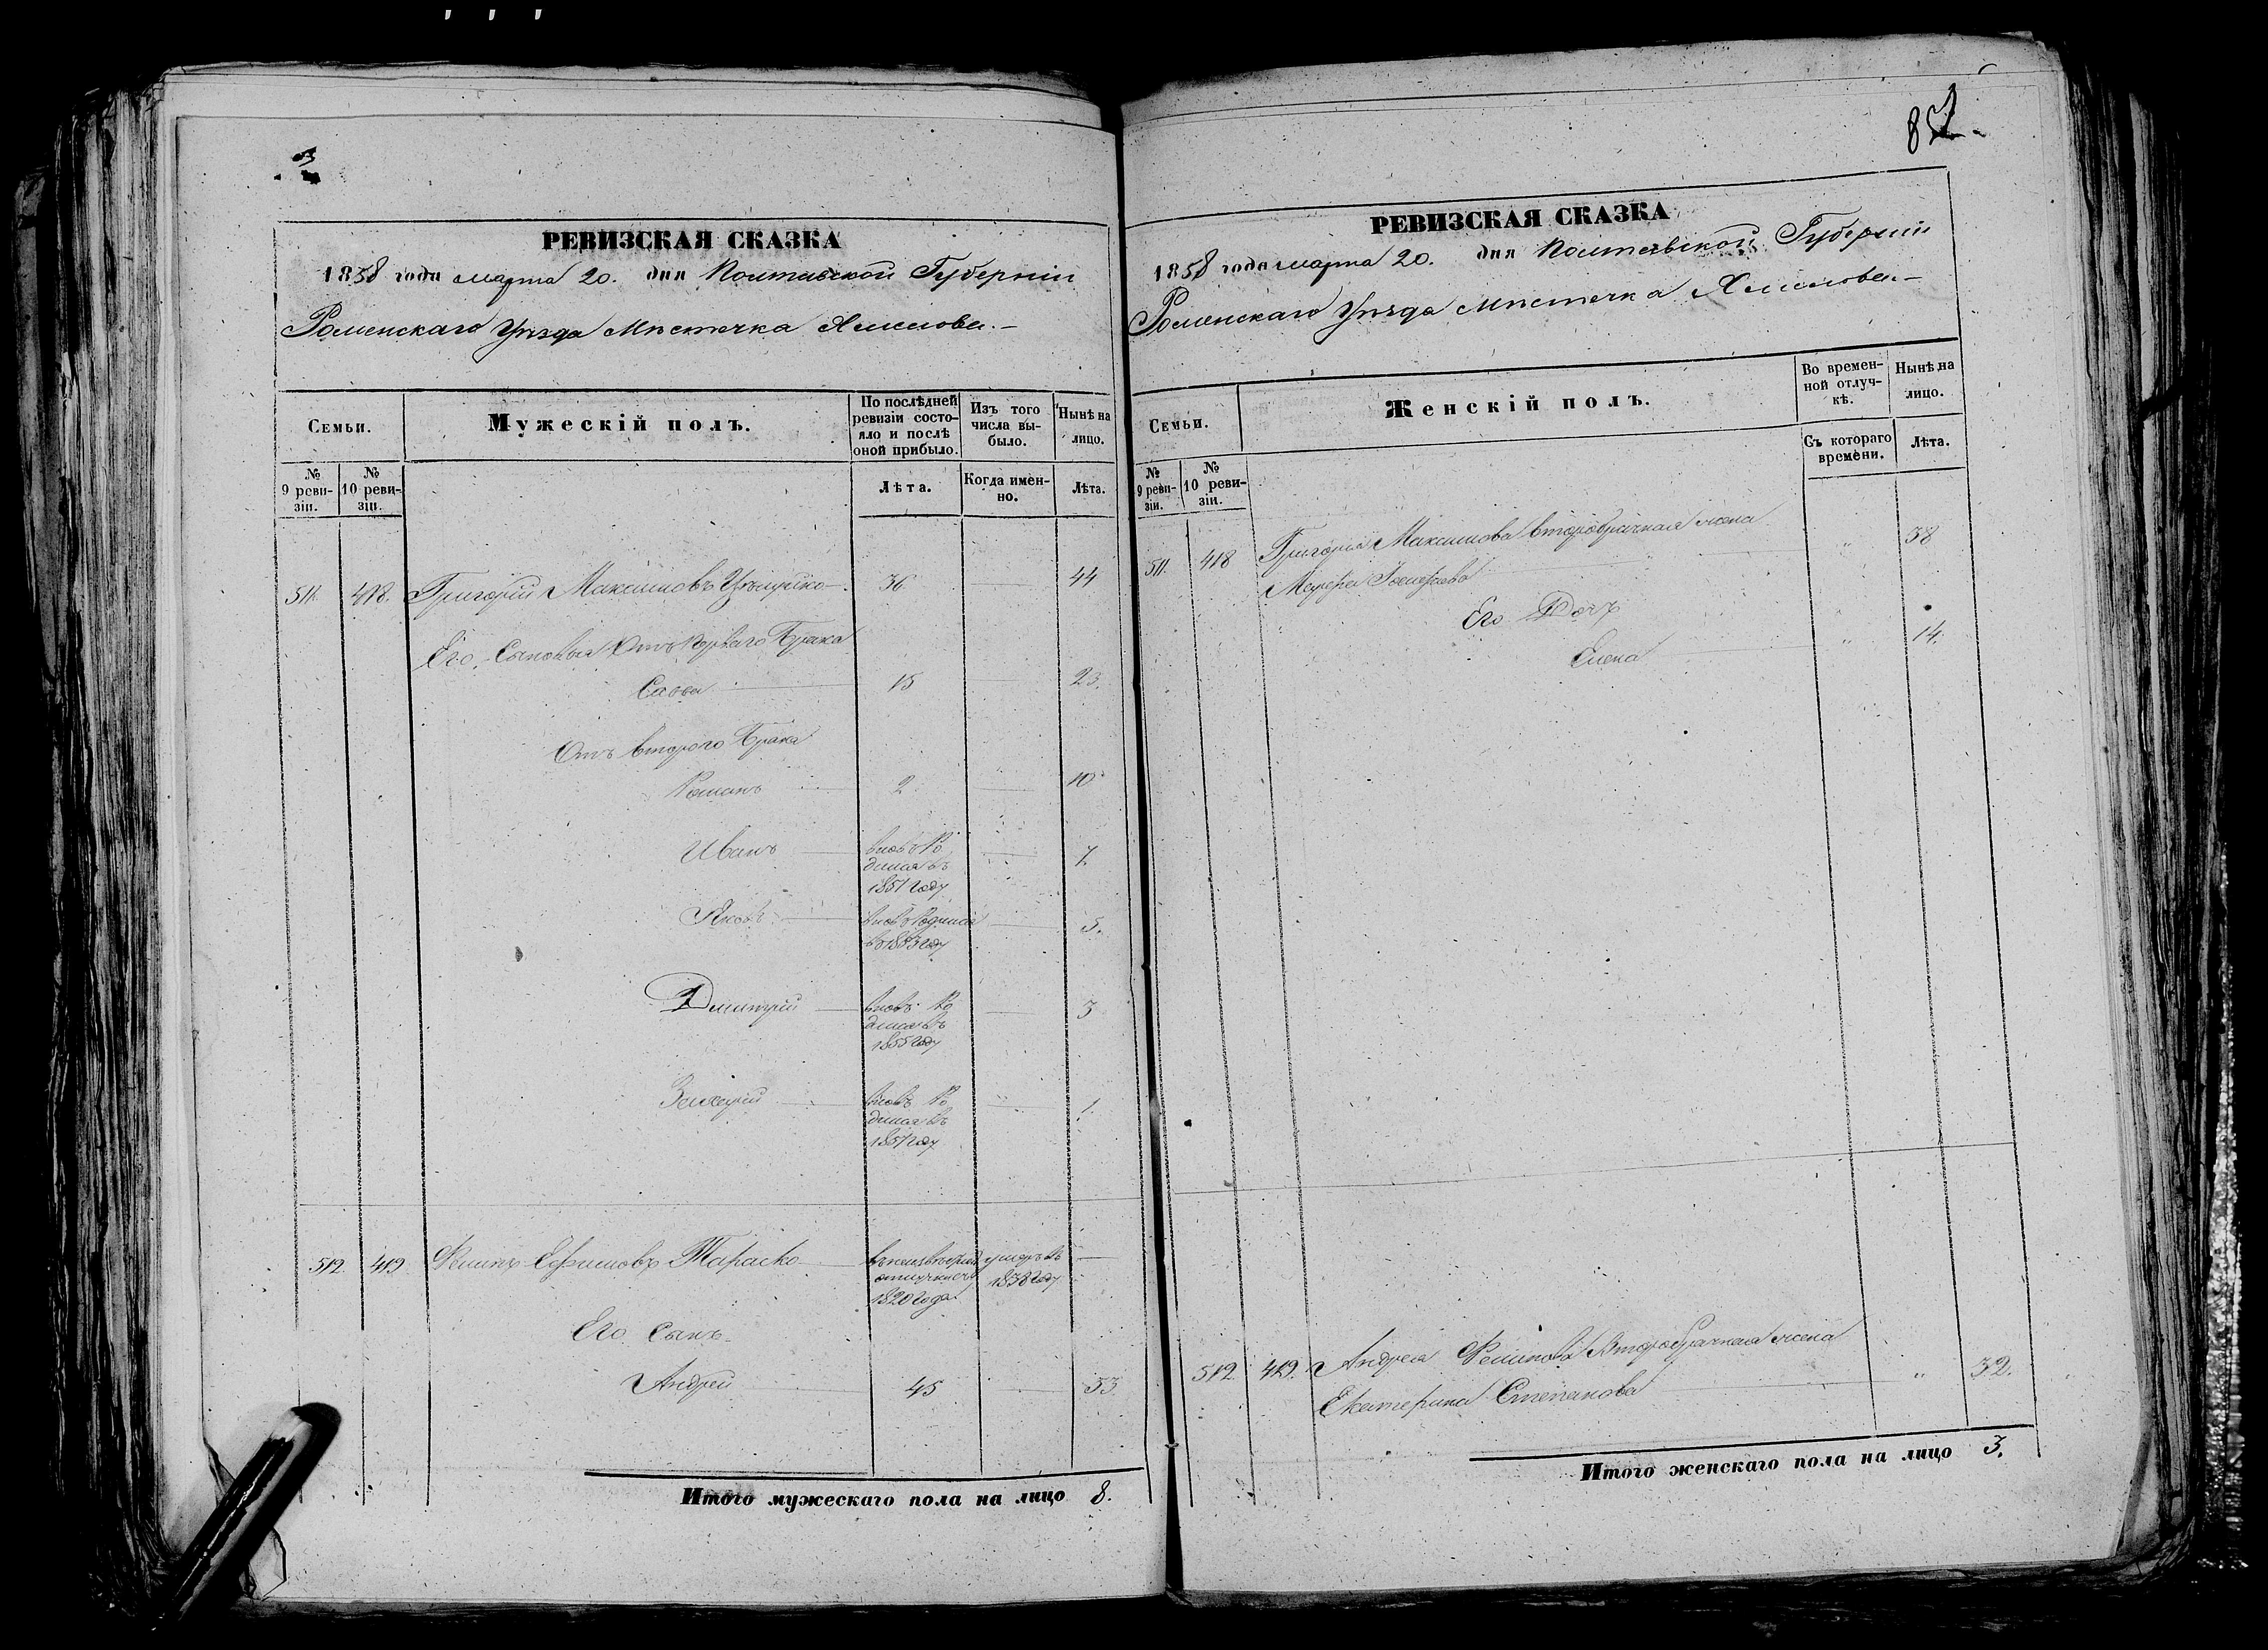 РЕВИЗСКАЯ СКАЗКА
1858 года марта 20. дня Полтавской Губерніи
Роменскаго Уѣзда Мѣстечка
Семьи.
Мужескій полъ.
По послѣдней ревизіи состояло и послѣ оной прибыло.
Изъ того числа выбыло.
Нынѣ на лицо.
№ 9 ревизіи.
№ 10 ревизіи.
Лѣта.
Когда именно.
Лѣта.
511. 418. Григорій Максимовъ 36 44
Его Сыновья Отъ перваго Брака
Савва 15 23.
Отъ втораго Брака
Романъ 2 10
Иванъ вновь Ро
дился въ 7.
1851 году
Яковъ вновь Родился 5.
въ 1853 году
Дмитрій вновь Ро 3
дился въ
1855 году
вновь Ро 1.
дился въ
1857 году
512. 419 Филипъ Ефимовъ Тараско въ неизвѣстной умеръ въ
отлучкѣ съ 1838 году
1820 года
Его Сынъ
Андрей 45 53.
Итого мужескаго пола на лицо 8.
852.
РЕВИЗСКАЯ СКАЗКА
1858 года марта 20. дня Полтавской Губерніи
Роменскаго Уѣзда Мѣстечка
Семьи.
Женскій полъ.
Во временной отлучкѣ.
Нынѣ на лицо.
№ 9 ревизіи.
№ 10 ревизіи.
Съ котораго времени.
Лѣта.
511. 418 Григорія Максимова второбрачная жена 38
Его Дочь
Елена 14.
512. 419. Андрея Филипова Второбрачная жена
Екатерина Степанова 32.
Итого женскаго пола на лицо 3.